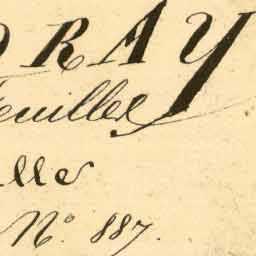 DRAY
Feuilles
lle
N.º 887.